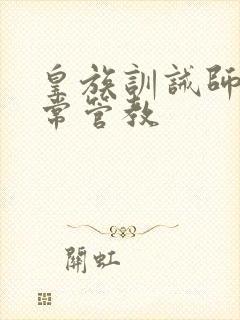 皇族訓誡師
常管教
關虹